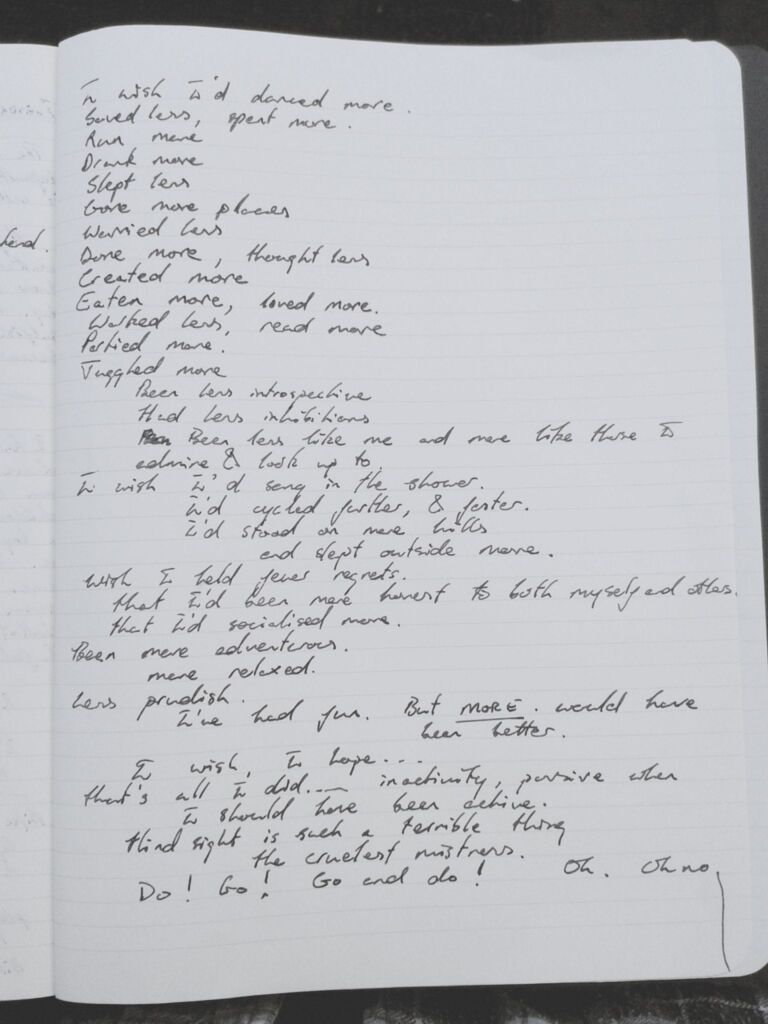 I wish I'd danced more.
Saved less, spent more.
Run more
Drank more
Slept less
Gone more places
Worried less
Done more, thought less
Created more
Eaten more, loved more.
Worked less, read more
Partied more.
Juggled more
Been less introspective
Had less inhibitions
Been less like me and more like those I
admire & look up to.
I wish I'd sang in the shower.
I'd cycled further, & faster.
I'd stood on more hills
and slept outside more.
Wish I held fewer regrets.
that I'd been more honest to both myself and others.
that I'd socialised more.
Been more adventurous.
more relaxed.
Less prudish.
I've had fun. But MORE. would have
been better.
I wish, I hope...
that's all I did.... inactivity, passive when
I should have been active.
Hind sight is such a terrible thing
the cruelest mistress.
Do! Go! Go and do! Oh. Oh no.
hend.